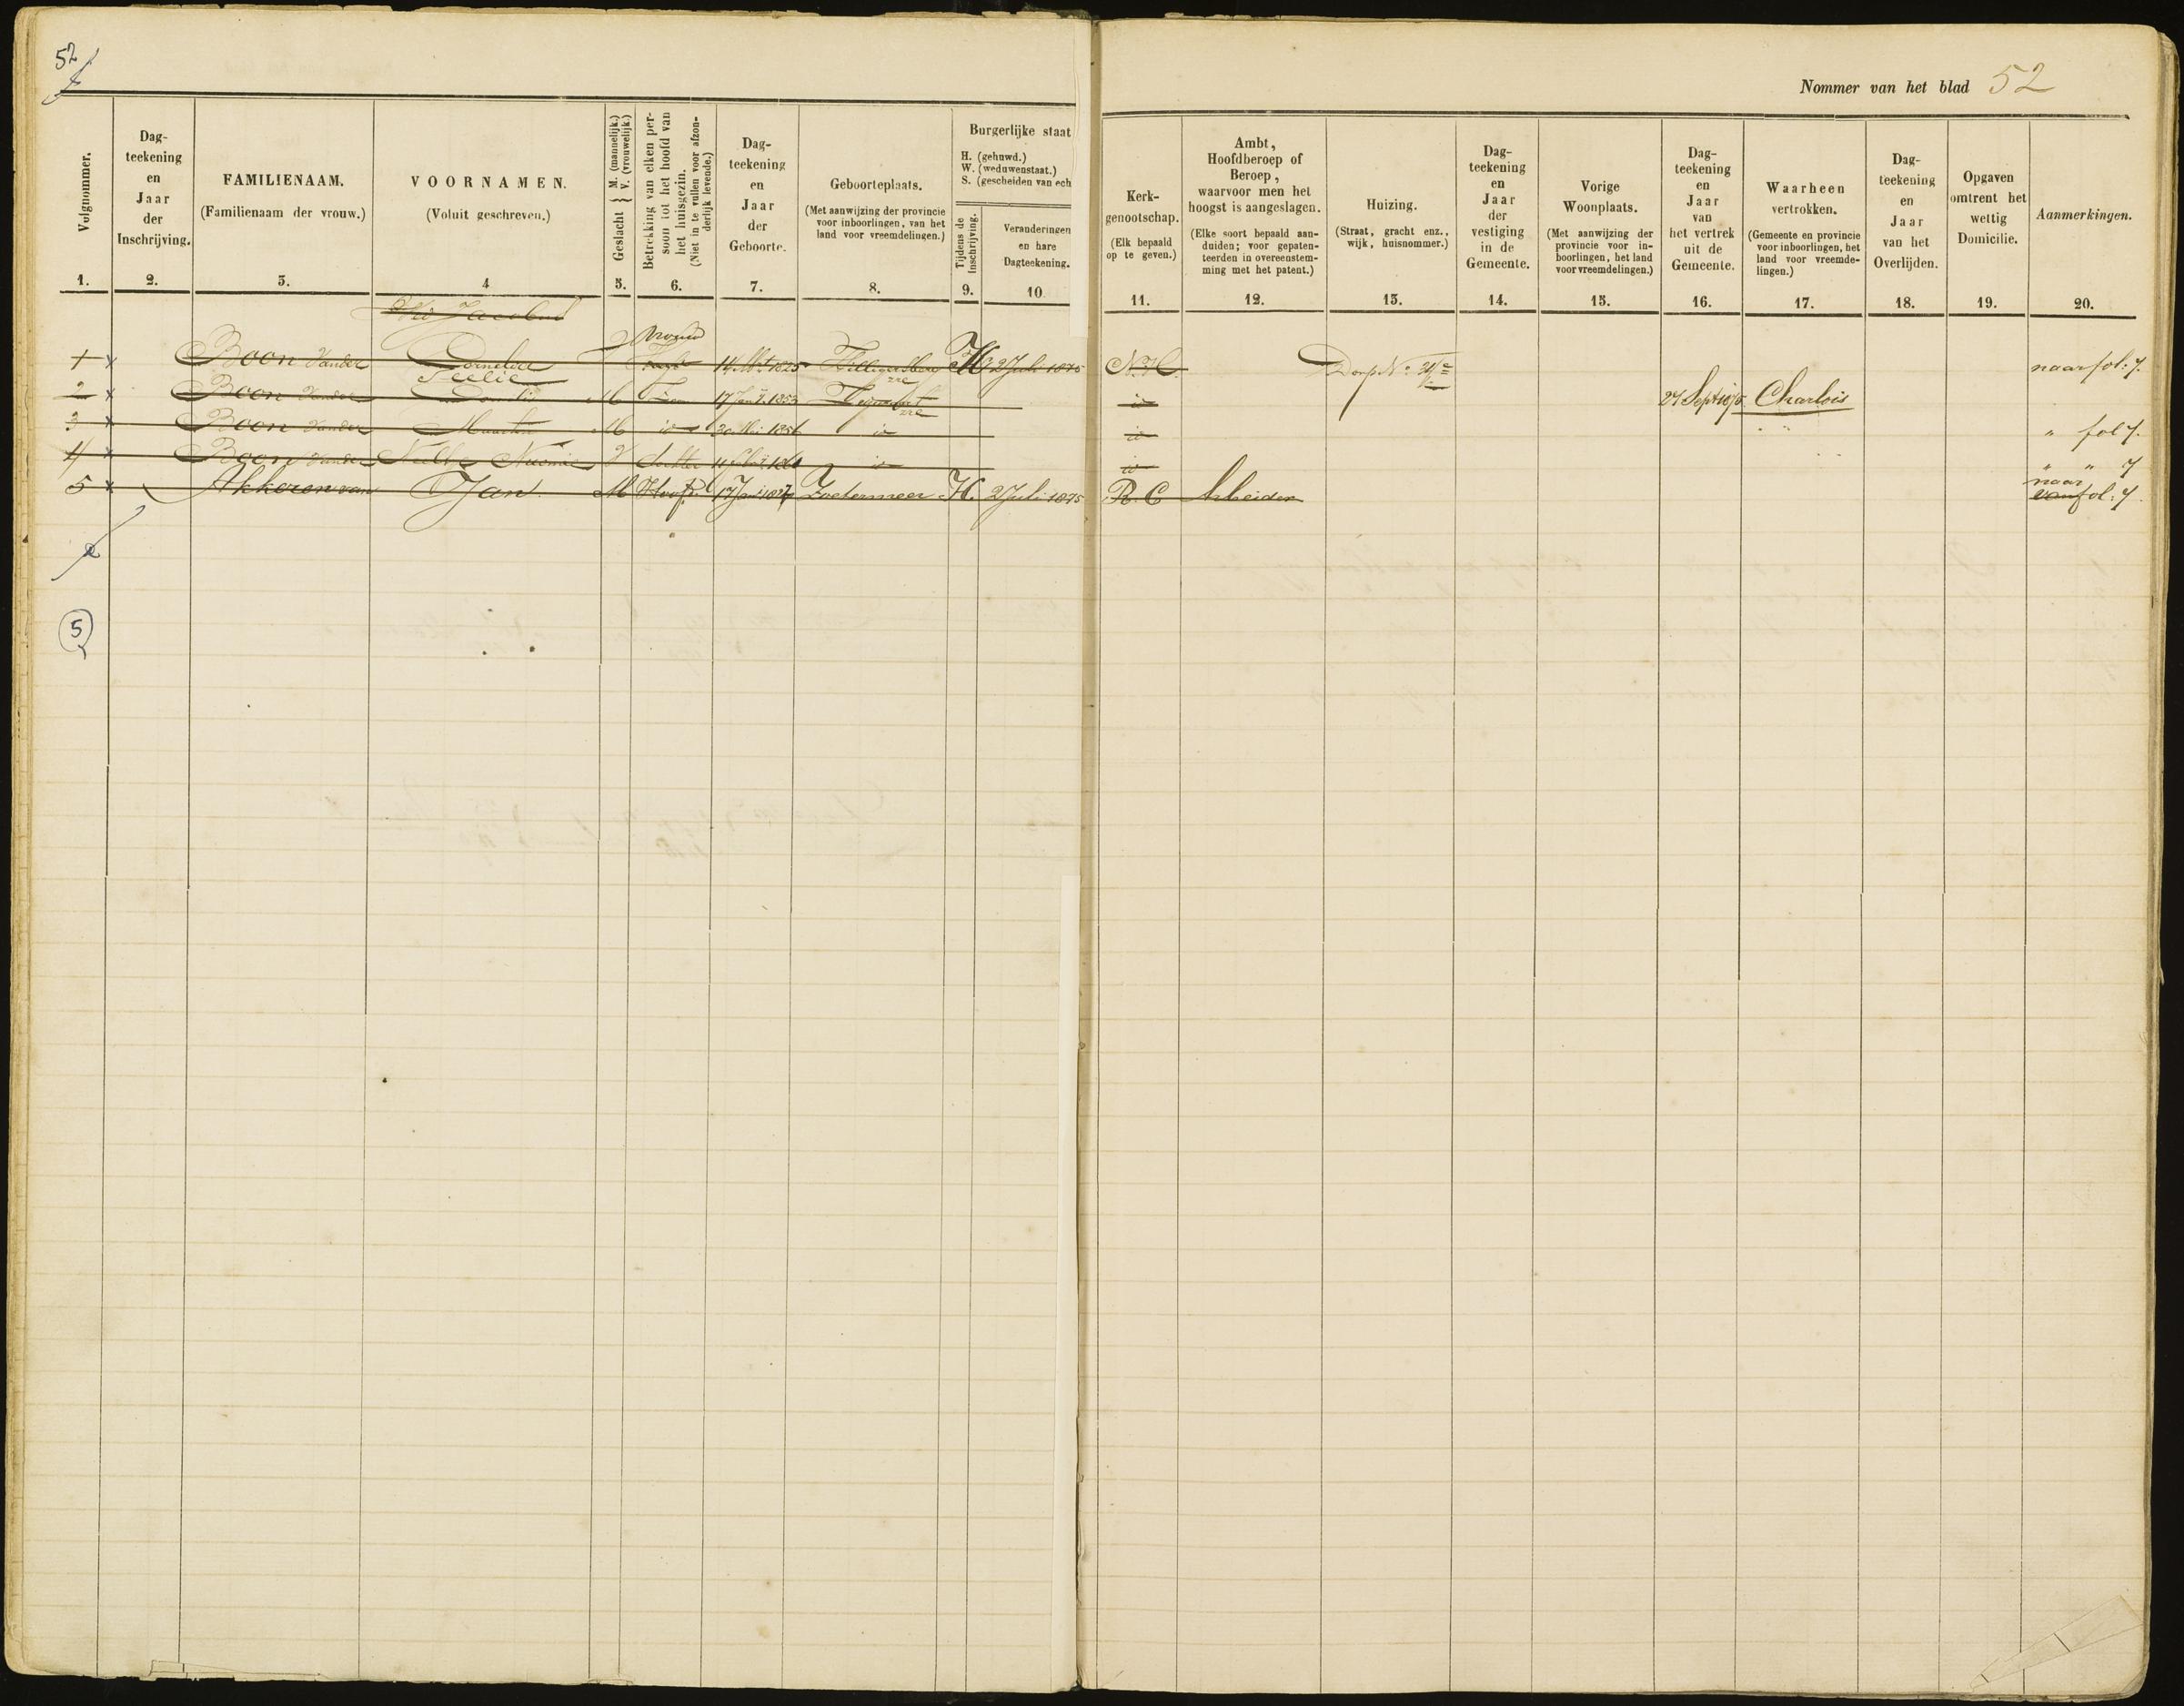 52
Nommer van het blad 52
Volgnommer.
1.
Dag-
teekening
en
Jaar
der
Inschrijving.
2.
FAMILIENAAM.
(Familienaam der vrouw.)
3.
VOORNAMEN.
(Voluit geschreven.)
4
Geslacht } M. (mannelijk.)
V. (vrouwelijk.)
5.
Betrekking van elken per-
soon tot het hoofd van
het huisgezin.
(Niet in te vullen voor afzon-
derlijk levende.)
6.
Dag-
teekening
en
Jaar
der
Geboorte.
7.
Geboorteplaats.
(Met aanwijzing der provincie
voor inboorlingen, van het
land voor vreemdelingen.)
8.
Burgerlijke staat
H. (gehuwd.)
W. (weduwenstaat.)
S. (gescheiden van ech
Tijdens de
Inschrijving.
9.
Veranderingen
en hare
Dagteekening.
10.
Kerk-
genootschap.
(Elk bepaald
op te geven.)
11.
Ambt,
Hoofdberoep of
Beroep,
waarvoor men het
hoogst is aangeslagen.
(Elke soort bepaald aan-
duiden; voor gepaten-
teerden in overeenstem-
ming met het patent.)
12.
Huizing.
(Straat, gracht enz.,
wijk, huisnommer.)
13.
Dag-
teekening
en
Jaar
der
vestiging
in de
Gemeente.
14.
Vorige
Woonplaats.
(Met aanwijzing der
provincie voor in-
boorlingen, het land
voor vreemdelingen.)
15.
Dag-
teekening
en
Jaar
van
het vertrek
uit de
Gemeente.
16.
Waarheen
vertrokken.
(Gemeente en provincie
voor inboorlingen, het
land voor vreemde-
lingen.)
17.
Dag-
teekening
en
Jaar
van het
Overlijden.
18.
Opgaven
omtrent het
wettig
Domicilie.
19.
Aanmerkingen.
20.
Jacobus
Vrouw
1 x Boon Vander Cornelia V 1825 Hillegersberg H 2 Juli 1875 N.H. Dorp No naar fol: 7.
2 x Boon Vander M Zoon 1853 id 27 Sept 1875 Charlois
3 x Boon Vander Maarten M id 30 Mei 1856 id id " fol 7.
4 x Boon Vander V dochter id id " " 7
naar
5 x Akkeren van Jan M Hoofd 1827 Zoetermeer H. 2 Juli 1875 R.C Arbeider van fol: 7.
5